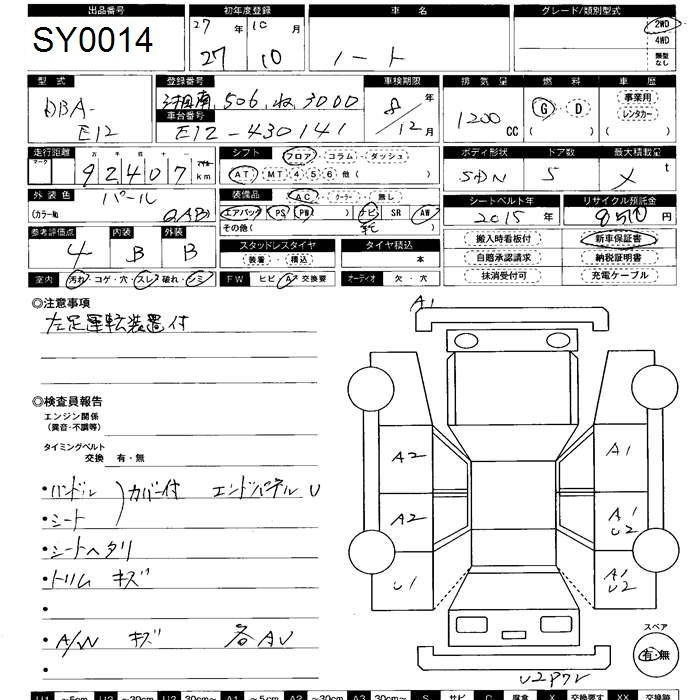 出品番号 初年度登録 車名 グレード/類別型式
SY0014 27年10月 2WD
27 10 ノート 4WD
類型なし
型式 登録番号 車検期限 排気量 燃料 車歴
DBA-E12 湘南.506.ね.3000 8年12月 1200cc G・D 事業用
車台番号 レンタカー
E12-430141
走行距離 シフト フロア・コラム・ダッシュ ボディ形状 ドア数 最大積載量
マーク 十 万 千 百 十 一 マイル
92407km AT MT 4 5 6 他( ) SDN 5 X t
外装色 パール 装備品 AC・クーラー・無し シートベルト年 リサイクル預託金
(カラー№ QAB) エアバック PS PW ( ) ナビ SR AW 2015年 8510円
その他(
参考評価点 内装 外装 スタッドレスタイヤ タイヤ積込 搬入時看板付 新車保証書
4 B B 装着・積込 本 自賠承認請求 納税証明書
室内 汚れ・コゲ・穴・スレ・破れ・シミ FW ヒビ・A・交換要 オーディオ 欠・穴 抹消受付可 充電ケーブル
◎注意事項
左足運転装置付
A1
◎検査員報告
エンジン関係
(異音・不調等)
タイミングベルト
交換 有・無
・ハンドル カバー付 エンドパネル U
・シート
・シートヘタリ
・トリム キズ
・
・A/W キズ 各AU
・
A2 A1
A2 A1 U2
U1 A1 U2
スペア
有・無
U2
U1 ～5cm U2 ～20cm U3 30cm～ A1 ～5cm A2 ～20cm A3 30cm～ S サビ C 腐食 X 交換要す XX 交換跡